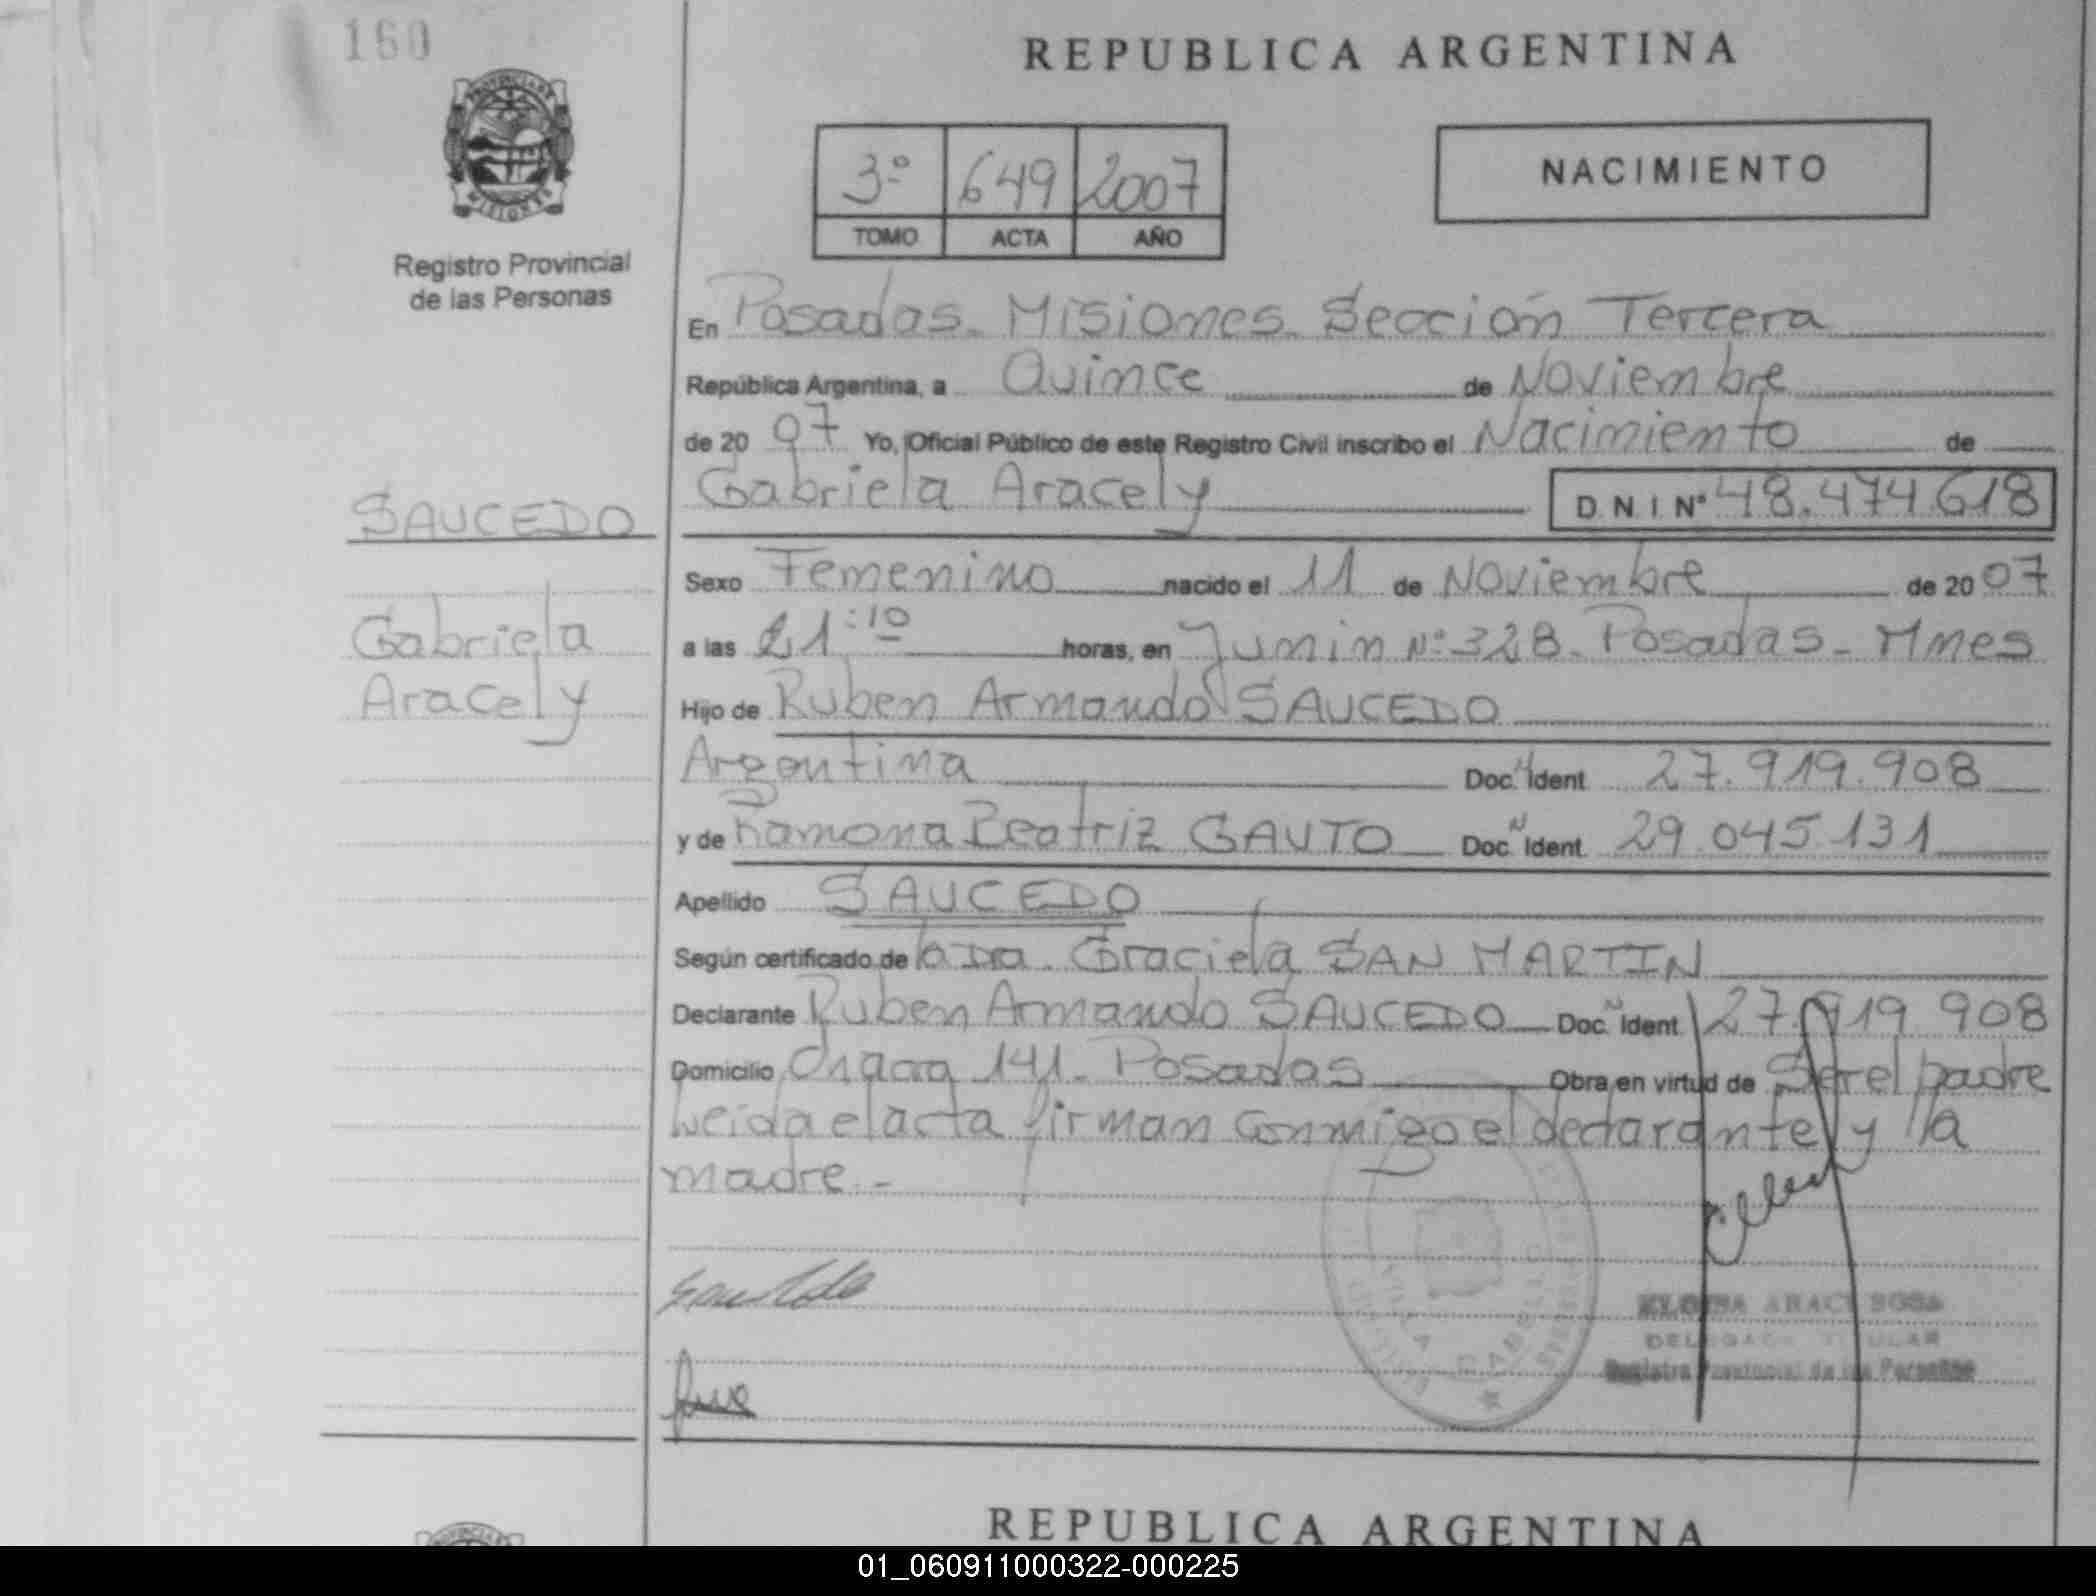 160
REPUBLICA ARGENTINA
PROVINCIA DE
MISIONES
Registro Provincial
de las Personas
3º 649 2007
TOMO ACTA AÑO
NACIMIENTO
En Posadas - Misiones - Sección Tercera
República Argentina, a Quince de Noviembre
de 20 07 Yo, Oficial Público de este Registro Civil inscribo el Nacimiento de
Gabriela Aracely D.N.I. Nº 48.474.618
SAUCEDO
Gabriela
Aracely
Sexo Femenino nacido el 11 de Noviembre de 20 07
a las 21:10 horas, en Junin Nº 328 - Posadas - Mnes
Hijo de Ruben Armando SAUCEDO
Argentina Doc. N Ident. 27.919.908
y de Ramona Beatriz GAUTO Doc. N Ident. 29.045.131
Apellido SAUCEDO
Según certificado de la Dra. Graciela SAN MARTIN
Declarante Ruben Armando SAUCEDO Doc. N Ident. 27.919.908
Domicilio 141 - Posadas Obra en virtud de Ser el padre
Leida el acta firman conmigo el declarante y la
madre.-
ARACI SOSA
DELEGADA TITULAR
Registro Provincial de las Personas
REPUBLICA ARGENTINA
01_060911000322-000225